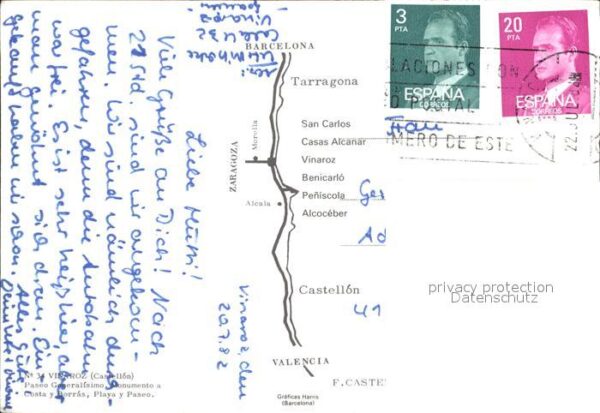 Vinaroz, den
20.7.82
Liebe Mutti!
Viele Grüße an Dich! Nach
21 Std. sind wir angekom-
men. Wir sind nämlich durch-
gefahren, denn die Autobahn
war frei. Es ist sehr heiß hier, aber
man gewöhnt sich dran. Ein-
gekauft haben wir schon. Alles Gute!
Vinaroz
BARCELONA
Tarragona
San Carlos
Casas Alcanar
Morella
Vinaroz
ZARAGOZA
Benicarló
Peñíscola
Alcala
Alcocéber
Castellón
VALENCIA
F. CASTE
Gráficas Harris
(Barcelona)
Nº 34 VINAROZ (Castellón)
Paseo Generalísimo, Monumento a
Costa y Borrás, Playa y Paseo.
3
PTA
ESPAÑA
CORREOS
20
PTA
ESPAÑA
CORREOS
LACIONES CON
POSTAL
MERO DE ESTE
22 JUL
Frau
Ge
Ad
41
privacy protection
Datenschutz